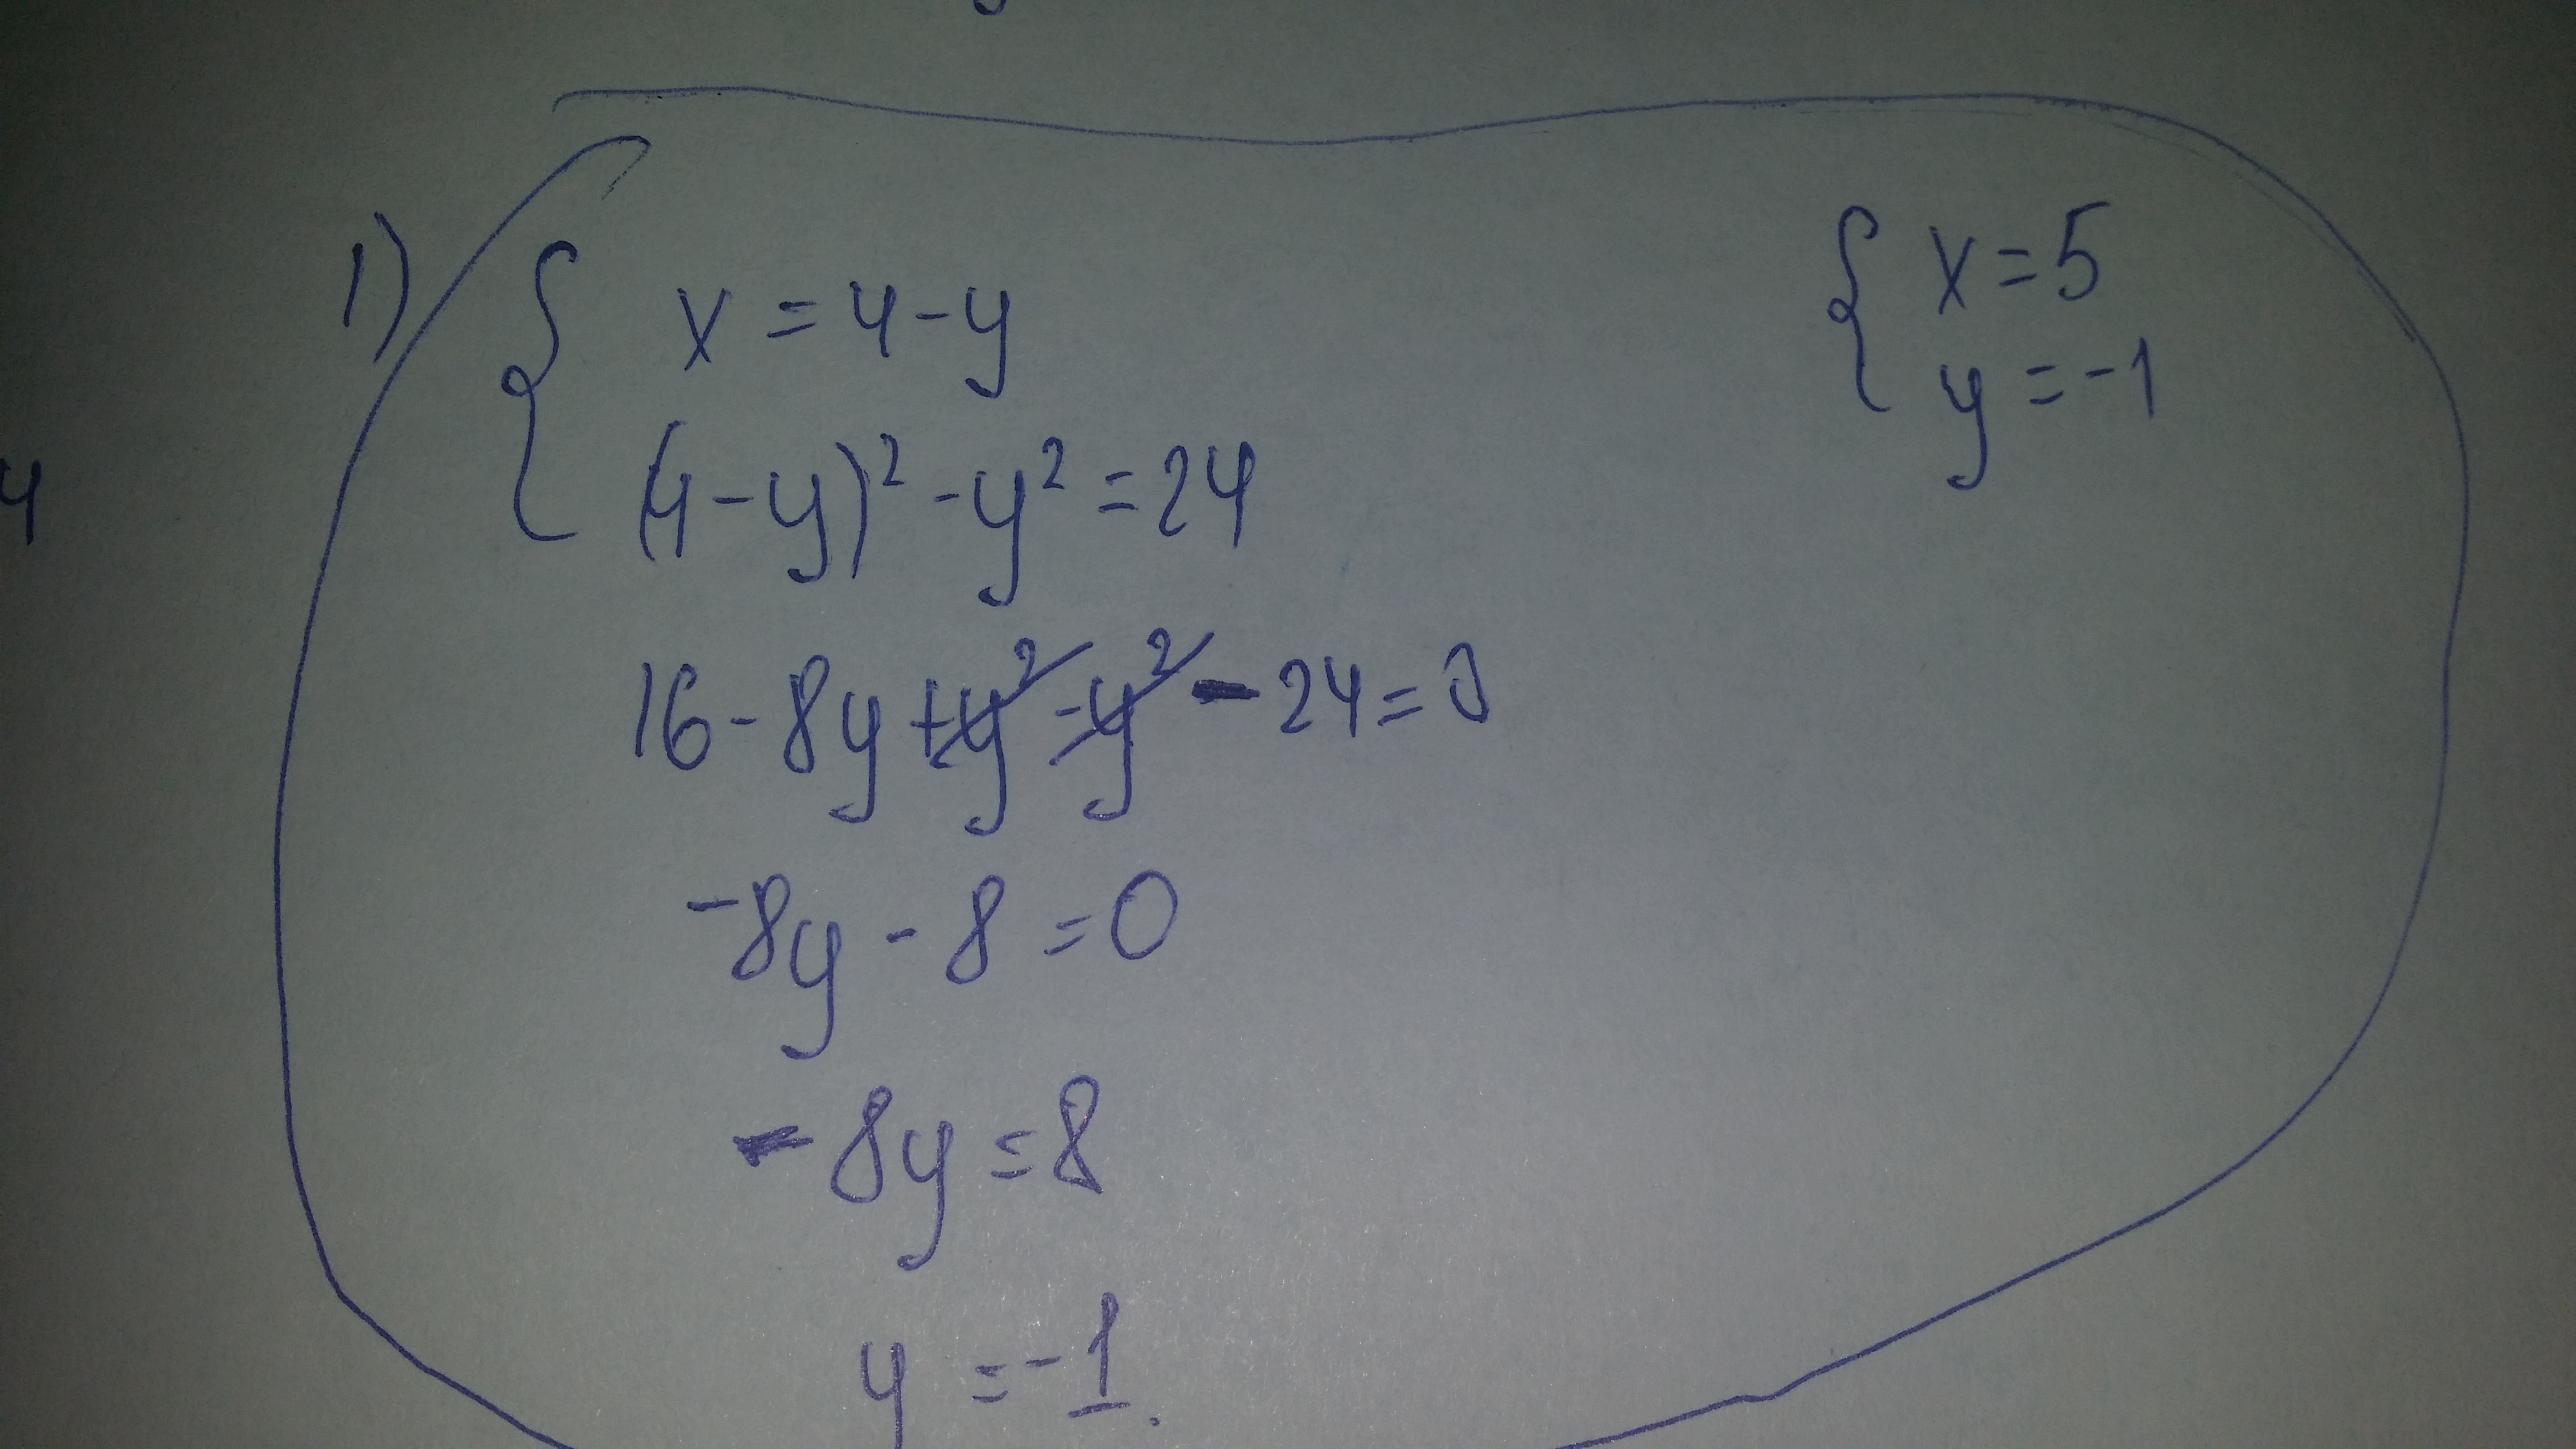 1)
{ x = 4 - y
(4 - y)² - y² = 24
16 - 8y + y² - y² - 24 = 0
-8y - 8 = 0
-8y = 8
y = -1.
{ x = 5
y = -1
4